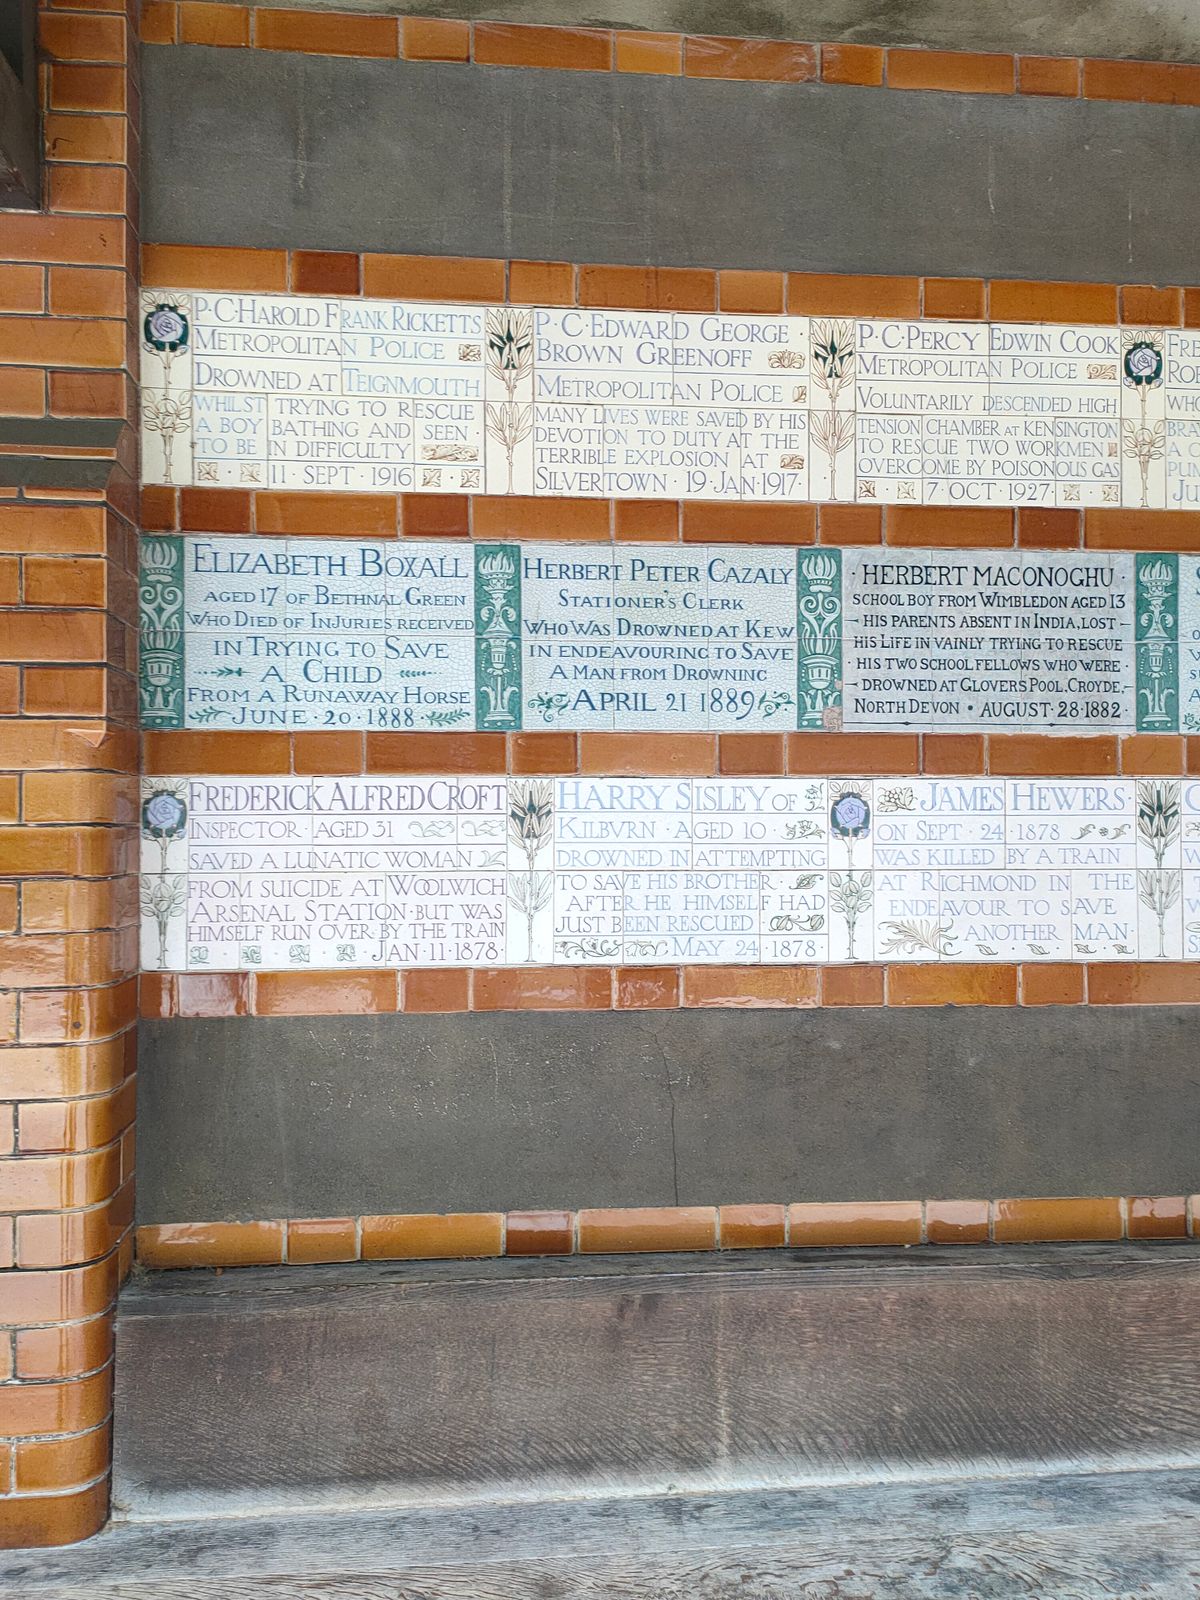 P·C·HAROLD FRANK RICKETTS
METROPOLITAN POLICE
DROWNED AT TEIGNMOUTH
WHILST TRYING TO RESCUE
A BOY BATHING AND SEEN
TO BE IN DIFFICULTY
11 · SEPT · 1916
P·C·EDWARD GEORGE ·
BROWN GREENOFF
METROPOLITAN POLICE
MANY LIVES WERE SAVED BY HIS
DEVOTION TO DUTY AT THE
TERRIBLE EXPLOSION AT
SILVERTOWN · 19·JAN·1917·
P·C·PERCY EDWIN COOK
METROPOLITAN POLICE
VOLUNTARILY DESCENDED HIGH
TENSION CHAMBER AT KENSINGTON
TO RESCUE TWO WORKMEN
OVERCOME BY POISONOUS GAS
7 · OCT · 1927·
ELIZABETH BOXALL
AGED 17 OF BETHNAL GREEN
WHO DIED OF INJURIES RECEIVED
IN TRYING TO SAVE
A CHILD
FROM A RUNAWAY HORSE
JUNE · 20 · 1888 ·
HERBERT PETER CAZALY
STATIONER'S CLERK
WHO WAS DROWNED AT KEW
IN ENDEAVOURING TO SAVE
A MAN FROM DROWNING
APRIL 21 1889
· HERBERT MACONOGHU ·
SCHOOL BOY FROM WIMBLEDON AGED 13
HIS PARENTS ABSENT IN INDIA, LOST
HIS LIFE IN VAINLY TRYING TO RESCUE
· HIS TWO SCHOOL FELLOWS WHO WERE ·
DROWNED AT GLOVERS POOL, CROYDE,
NORTH DEVON • AUGUST · 28 · 1882 ·
FREDERICK ALFRED CROFT
INSPECTOR · AGED 31
SAVED A LUNATIC WOMAN
FROM SUICIDE AT WOOLWICH
ARSENAL STATION · BUT WAS
HIMSELF RUN OVER BY THE TRAIN
JAN · 11 · 1878 ·
HARRY SISLEY OF
KILBVRN · AGED 10 ·
DROWNED IN ATTEMPTING
TO SAVE HIS BROTHER ·
AFTER HE HIMSELF HAD
JUST BEEN RESCUED
MAY 24 · 1878
JAMES HEWERS ·
ON SEPT · 24 · 1878
WAS KILLED BY A TRAIN
AT RICHMOND IN THE
ENDEAVOUR TO SAVE
ANOTHER MAN ·